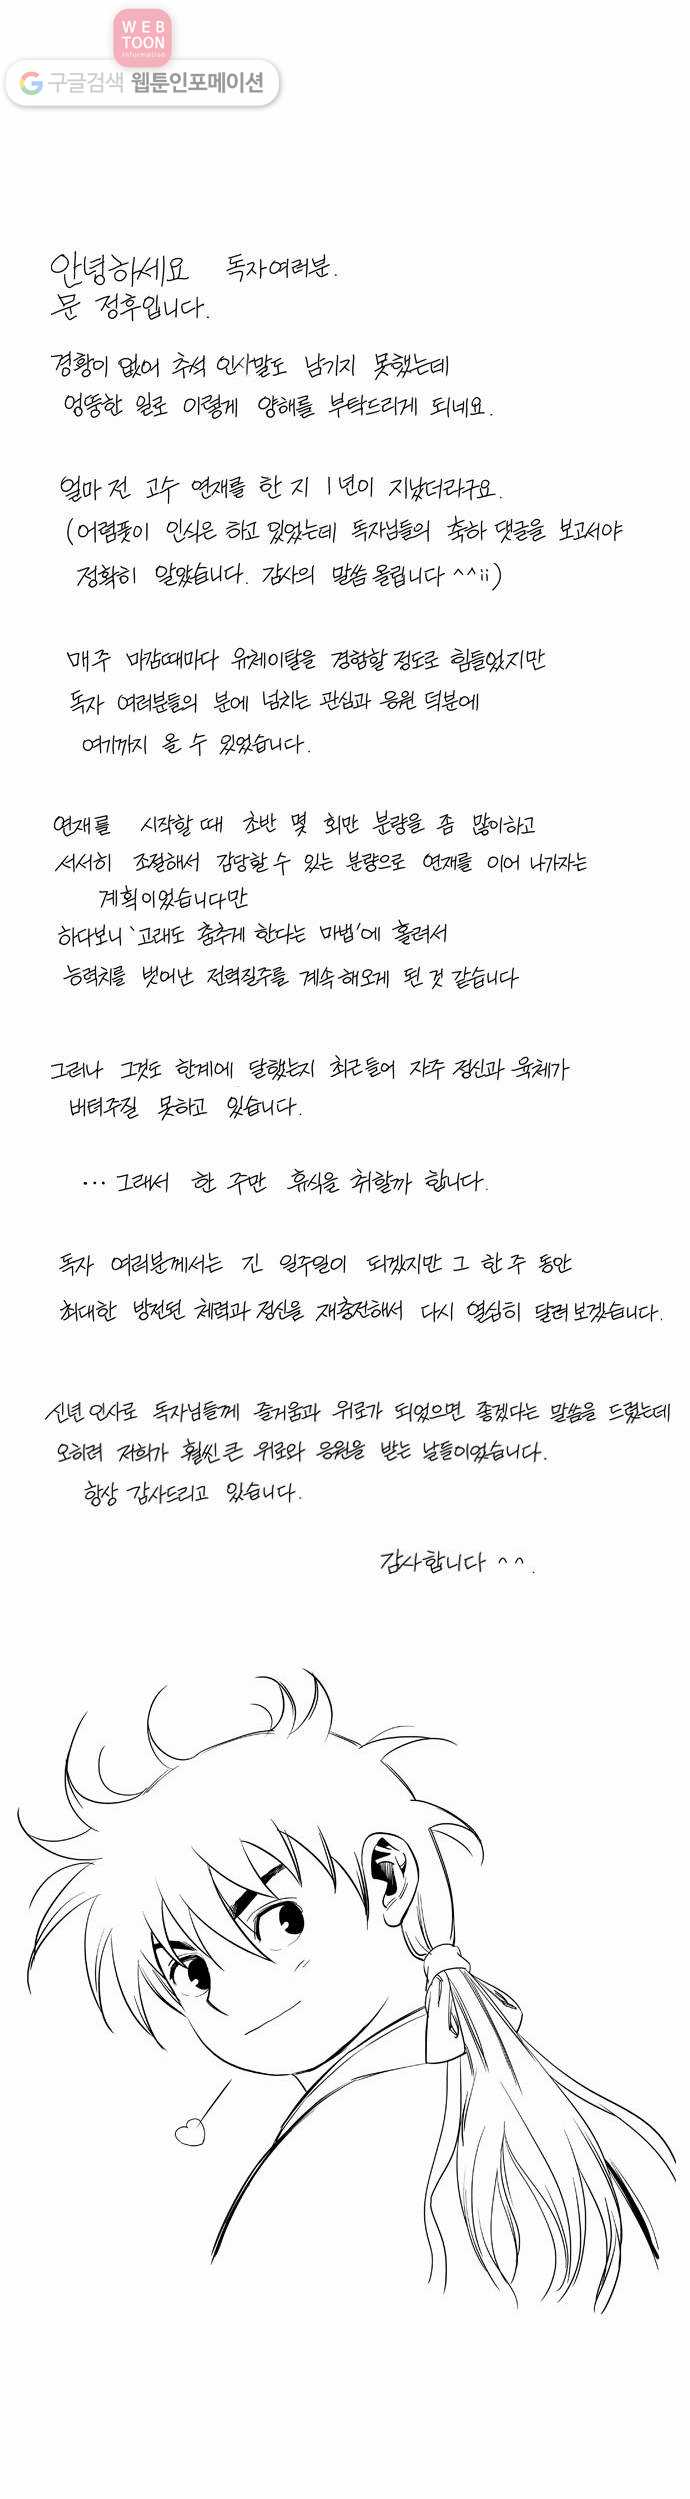 WEB
TOON
information
구글검색 웹툰인포메이션
안녕하세요 독자여러분.
문 정후입니다.
경황이 없어 추석 인사말도 남기지 못했는데
엉뚱한 일로 이렇게 양해를 부탁드리게 되네요.
얼마 전 고수 연재를 한 지 1년이 지났더라구요.
(어렴풋이 인식은 하고 있었는데 독자님들의 축하 댓글을 보고서야
정확히 알았습니다. 감사의 말씀 올립니다 ^^;;)
매주 마감때마다 유체이탈을 경험할 정도로 힘들었지만
독자 여러분들의 분에 넘치는 관심과 응원 덕분에
여기까지 올 수 있었습니다.
연재를 시작할 때 초반 몇 회만 분량을 좀 많이하고
서서히 조절해서 감당할 수 있는 분량으로 연재를 이어 나가자는
계획이었습니다만
하다보니 '고래도 춤추게 한다는 마법'에 홀려서
능력치를 벗어난 전력질주를 계속 해오게 된 것 같습니다
그러나 그것도 한계에 달했는지 최근들어 자주 정신과 육체가
버텨주질 못하고 있습니다.
... 그래서 한 주만 휴식을 취할까 합니다.
독자 여러분께서는 긴 일주일이 되겠지만 그 한 주 동안
최대한 방전된 체력과 정신을 재충전해서 다시 열심히 달려 보겠습니다.
신년 인사로 독자님들께 즐거움과 위로가 되었으면 좋겠다는 말씀을 드렸는데
오히려 저희가 훨씬 큰 위로와 응원을 받는 날들이었습니다.
항상 감사드리고 있습니다.
감사합니다 ^^.